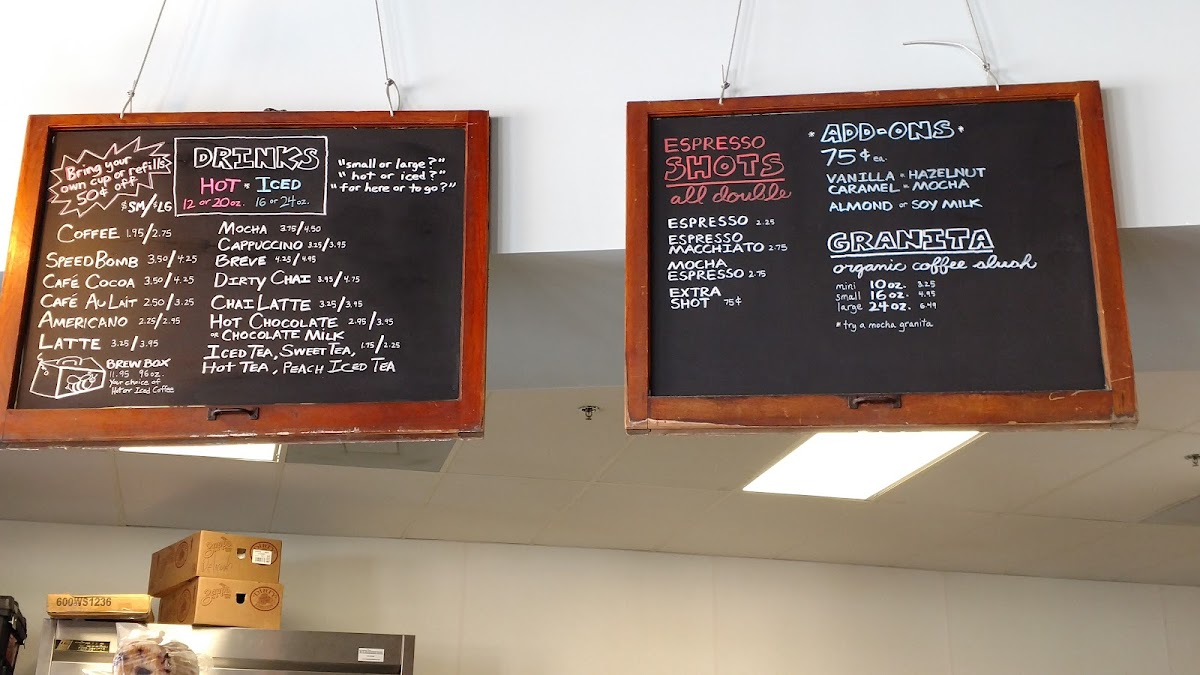 Bring your
own cup or refills
50¢ off
$SM/$LG
DRINKS
HOT or ICED
12 or 20oz. 16 or 24oz.
"small or large?"
"hot or iced?"
"for here or to go?"
COFFEE 1.95/2.75
SPEED BOMB 3.50/4.25
CAFÉ COCOA 3.50/4.25
CAFÉ AU LAIT 2.50/3.25
AMERICANO 2.25/2.95
LATTE 3.25/3.95
BREW BOX
11.95 96oz.
Your choice of
Hot or Iced Coffee
MOCHA 3.75/4.50
CAPPUCCINO 3.25/3.95
BREVE 4.25/4.95
DIRTY CHAI 3.95/4.75
CHAI LATTE 3.25/3.95
HOT CHOCOLATE 2.95/3.95
or CHOCOLATE MILK
ICED TEA, SWEET TEA, 1.75/2.25
HOT TEA, PEACH ICED TEA
ESPRESSO
SHOTS
all double
ESPRESSO 2.25
ESPRESSO
MACCHIATO 2.75
MOCHA
ESPRESSO 2.75
EXTRA
SHOT 75¢
* ADD-ONS *
75¢ ea.
VANILLA - HAZELNUT
CARAMEL - MOCHA
ALMOND or SOY MILK
GRANITA
organic coffee slush
mini 10oz. 3.25
small 16oz. 4.95
large 24oz. 6.49
* try a mocha granita
600-WS1236